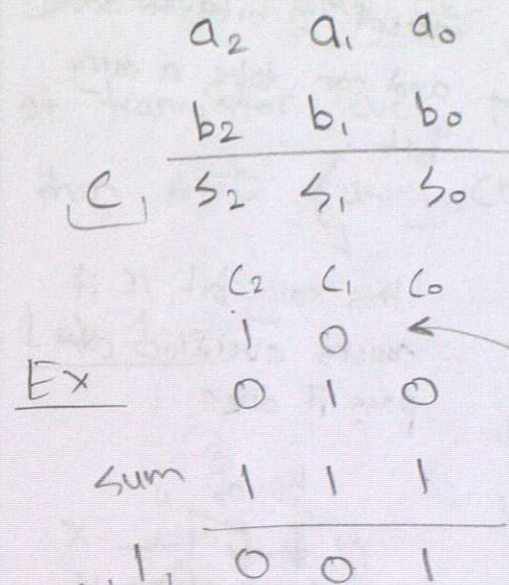 a2 a1 a0
b2 b1 b0
C, S2 S1 S0
C2 C1 C0
1 0 ←
Ex 0 1 0
sum 1 1 1
1 0 0 1